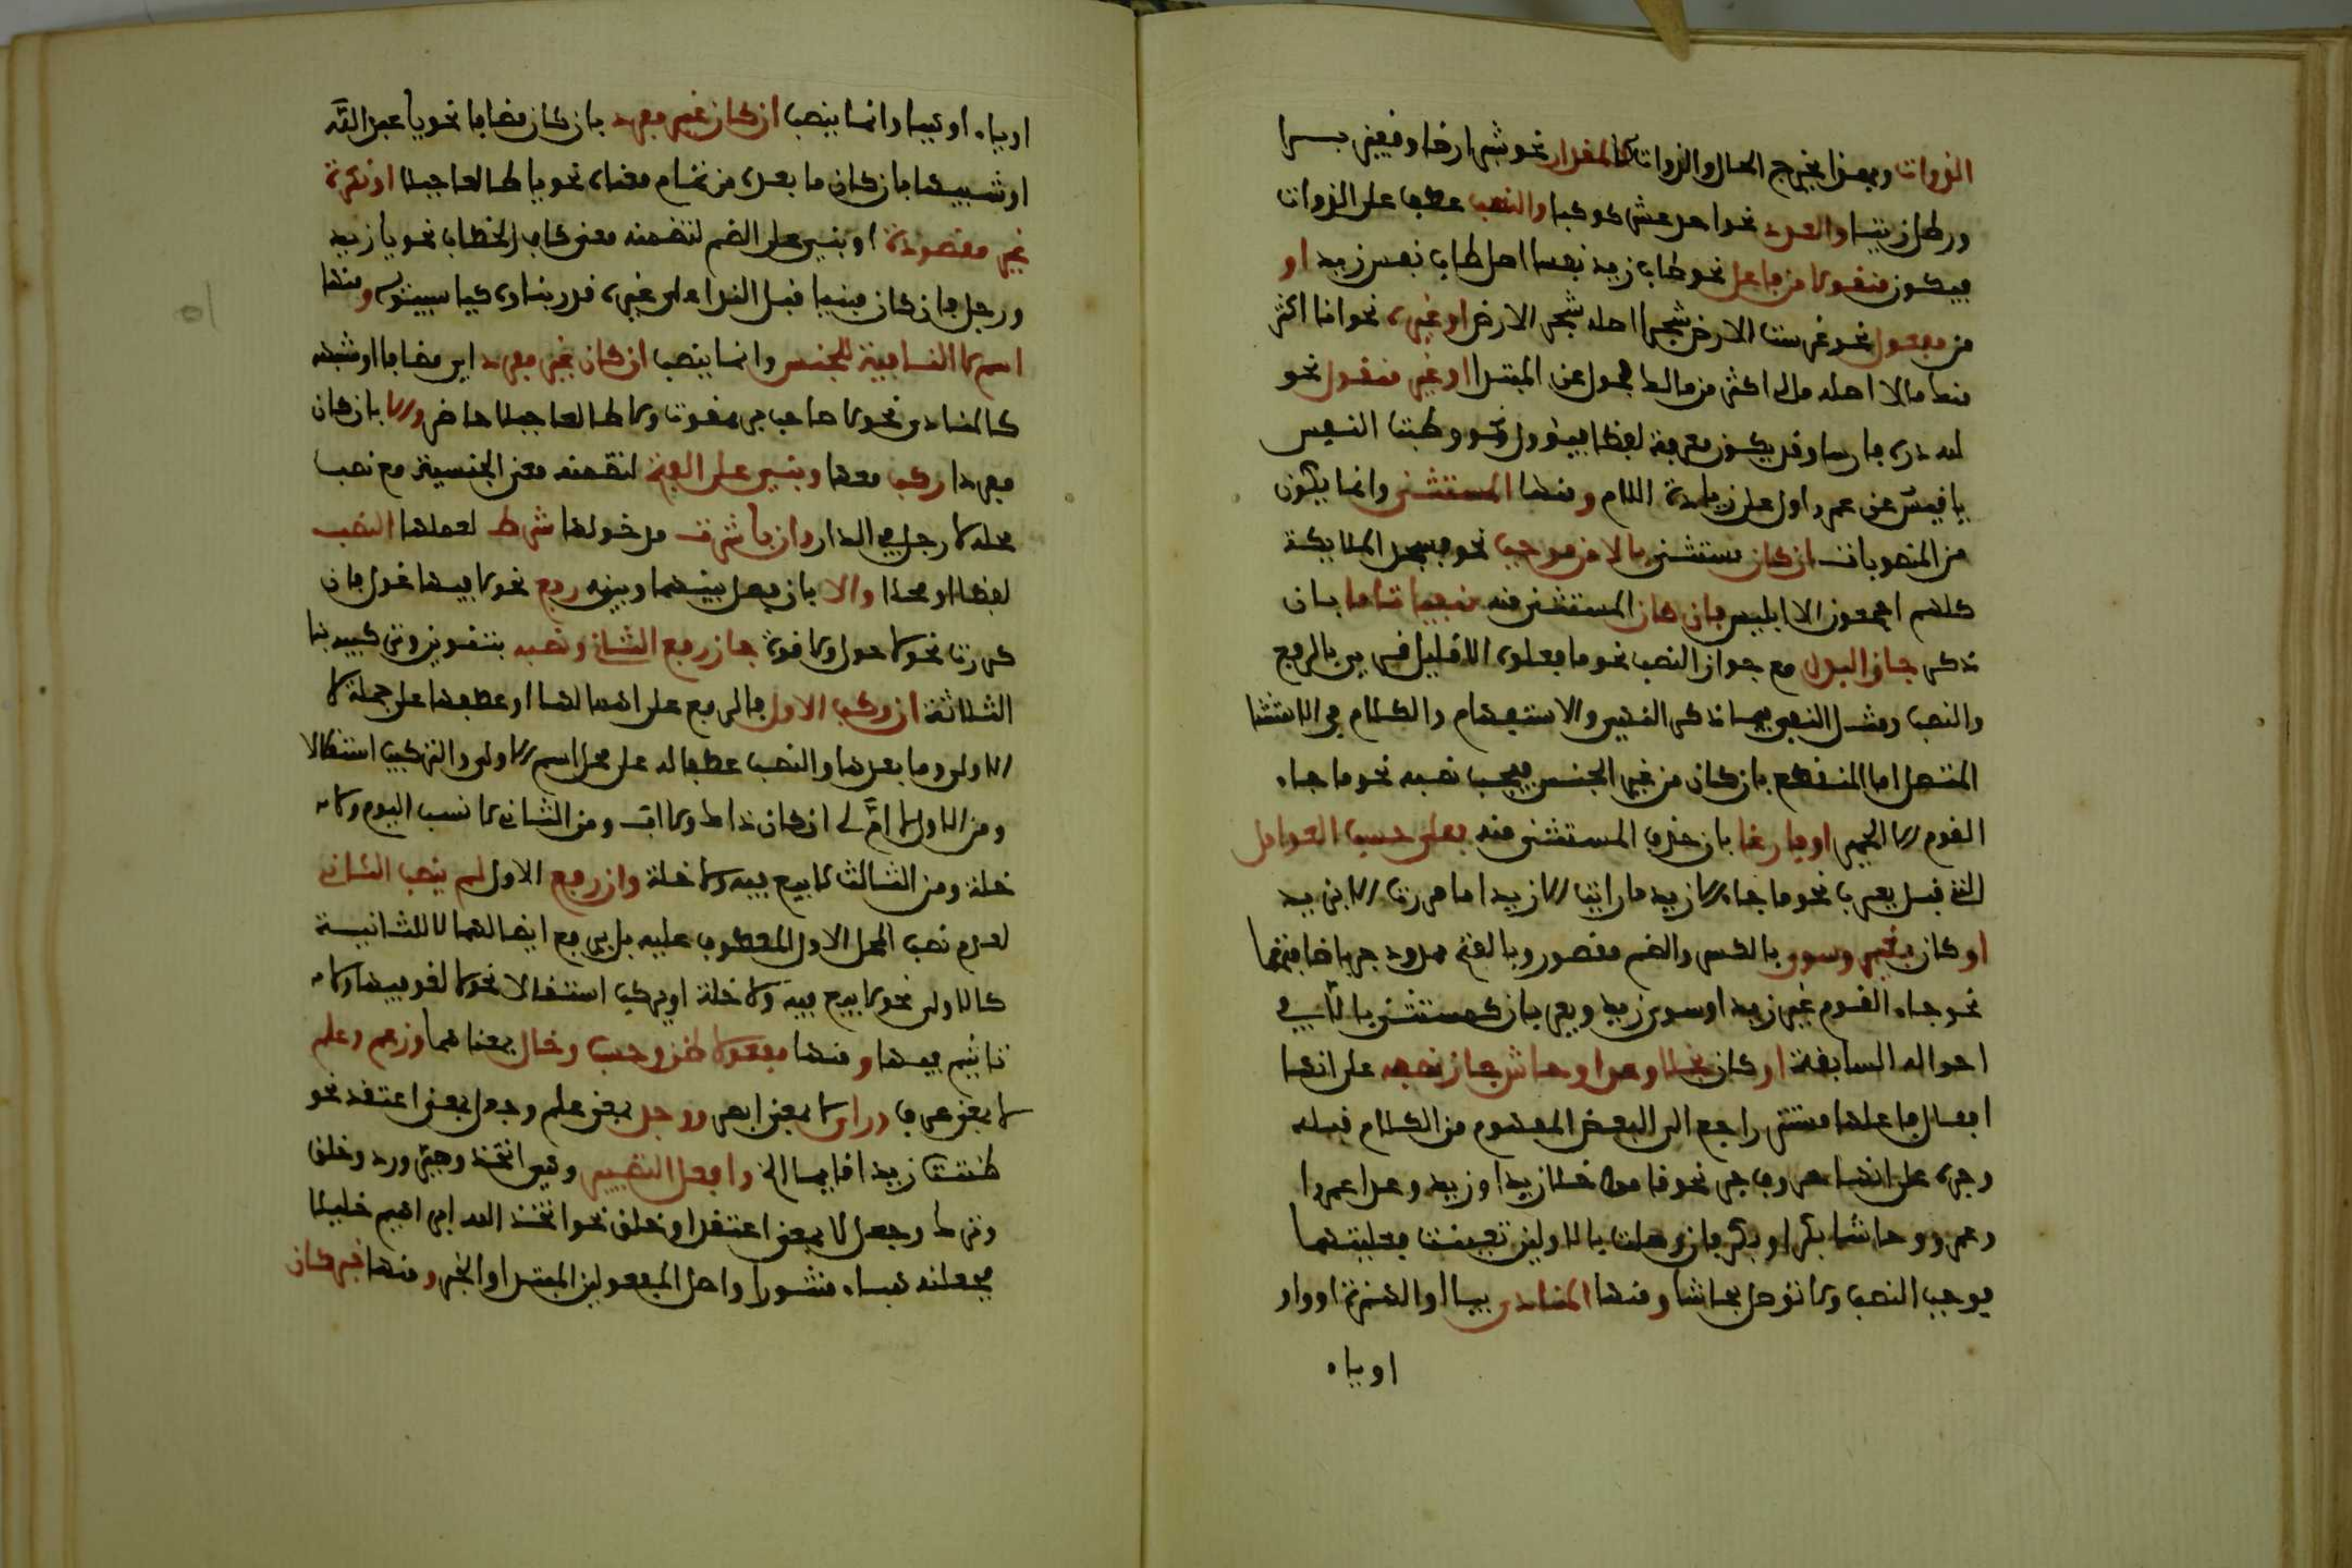 الذوات وبهذا يخرج الحال والذوات كالمقدار نحو شبر ارضا وقفيز برا
ورطل زيتا والعدد نحو احد عشر كوكبا والنسب عطف على الذوات
فيكون منقولا من فاعل نحو طاب زيد نفسا اصله طاب نفس زيد او
من مفعول نحو غرست الارض شجرا اصله شجر الارض او غيره نحو انا اكثر
منك مالا اصله مالى اكثر من مالك فحول عن المبتدا او غير منقول نحو
لله دره فارسا وقد يكون معرفة لفظا فيئول نحو وطبت النفس
يا قيس عن عمرو اول على زيادة اللام ومنها المستثنى وانما يكون
من المنصوبات ان كان مستثنى بالا من موجب نحو فسجد الملايكة
كلهم اجمعون الا ابليس فان كان المستثنى منه منفيا تاما بان
ذكر جاز البدل مع جواز النصب نحو ما فعلوه الا قليل قرى بالرفع
والنصب ومثل النفي فيما ذكر النهي والاستفهام والكلام في الاستثنا
المتصل اما المنقطع بان كان من غير الجنس فيجب نصبه نحو ما جاء
القوم الا الحمير او فارغا بان حذف المستثنى منه فعلى حسب العوامل
التي قبل يعرب نحو ما جاء الا زيد ما رايت الا زيدا ما مررت الا بزيد
او كان بغير وسوى بالكسر والضم مقصور وبالفتح ممدود جر باضافتهما
نحو جاء القوم غير زيد او سوى زيد ويعربان كمستثنى بالا في
احواله السابقة او كان بخلا وعدا وحاشى جاز نصبه على انها
افعال فاعلها مستتر راجع الى البعض المفهوم من الكلام قبله
وجره على انها حروف جر نحو قاموا خلا زيدا وزيد وعدا عمرا
وعمرو وحاشا بكرا وبكر فان وصلت ما بالاولين تعينت فعليتهما
فوجب النصب ولا توصل بحاشا ومنها المنادى بيا او الهمزة او وا
او ياء
او ياء او هيا وانما ينصب ان كان غير مفرد بان كان مضافا نحو يا عبد الله
او شبيها بان كان ما بعده من تمام معناه نحو يا طالعا جبلا او نكرة
غير مقصودة او بني على الضم لتضمنه معنى كاف الخطاب نحو يا زيد
ورجل فان كان مبنيا قبل الندا على غيره قدر بناوه كيا سيبويه ومنها
اسم لا النافية للجنس وانما ينصب ان كان غير مفرد اي مضافا او شبهه
كالمنادى نحو لا صاحب بر ممقوت ولا طالعا جبلا حاضر والا بان كان
مفردا ركب معها وبني على الفتح لتضمنه معنى الجنسية مع نصب
محله لا رجل في الدار وان باشرت مدخولها شرط لعملها النصب
لفظا او محلا والا بان فصل بينهما وبينه رفع نحو لا فيها غول فان
كررت نحو لا حول ولا قوة جاز رفع الثاني ونصبه بتنوين وتركيبه بنا
الثلاثة ان ركب الاول فالرفع على اهمالها او عطفها على جملة لا
الاولى وما بعدها والنصب عطفا له على محل اسم الاولى والتركيب استقلالا
ومن الاول لا ام لي ان كان ذاك ولا اب ومن الثاني لا نسب اليوم ولا
خلة ومن الثالث لا بيع فيه ولا خلة وان رفع الاول لم ينصب الثاني
لعدم نصب المحل الاول للمعطوف عليه بل يرفع ايضا اهمالا للثانية
كالاولى نحو لا بيع فيه ولا خلة او يركب استقلالا نحو لا لغو فيها ولا
تاثيم فيها ومنها مفعولا ظن وحسب وخال بمعناهما وزعم وعلم
لا بمعنى عرف وراى لا بمعنى ابصر ووجد بمعنى علم وجعل بمعنى اعتقد نحو
ظننت زيدا قايما الخ وافعل التصيير وهى اتخذ وصير ورد وخلق
وترك وجعل لا بمعنى اعتقد او خلق نحو اتخذ الله ابراهيم خليلا
فجعلناه هباء منثورا واصل المفعولين المبتدا والخبر ومنها خبر كان
٥١